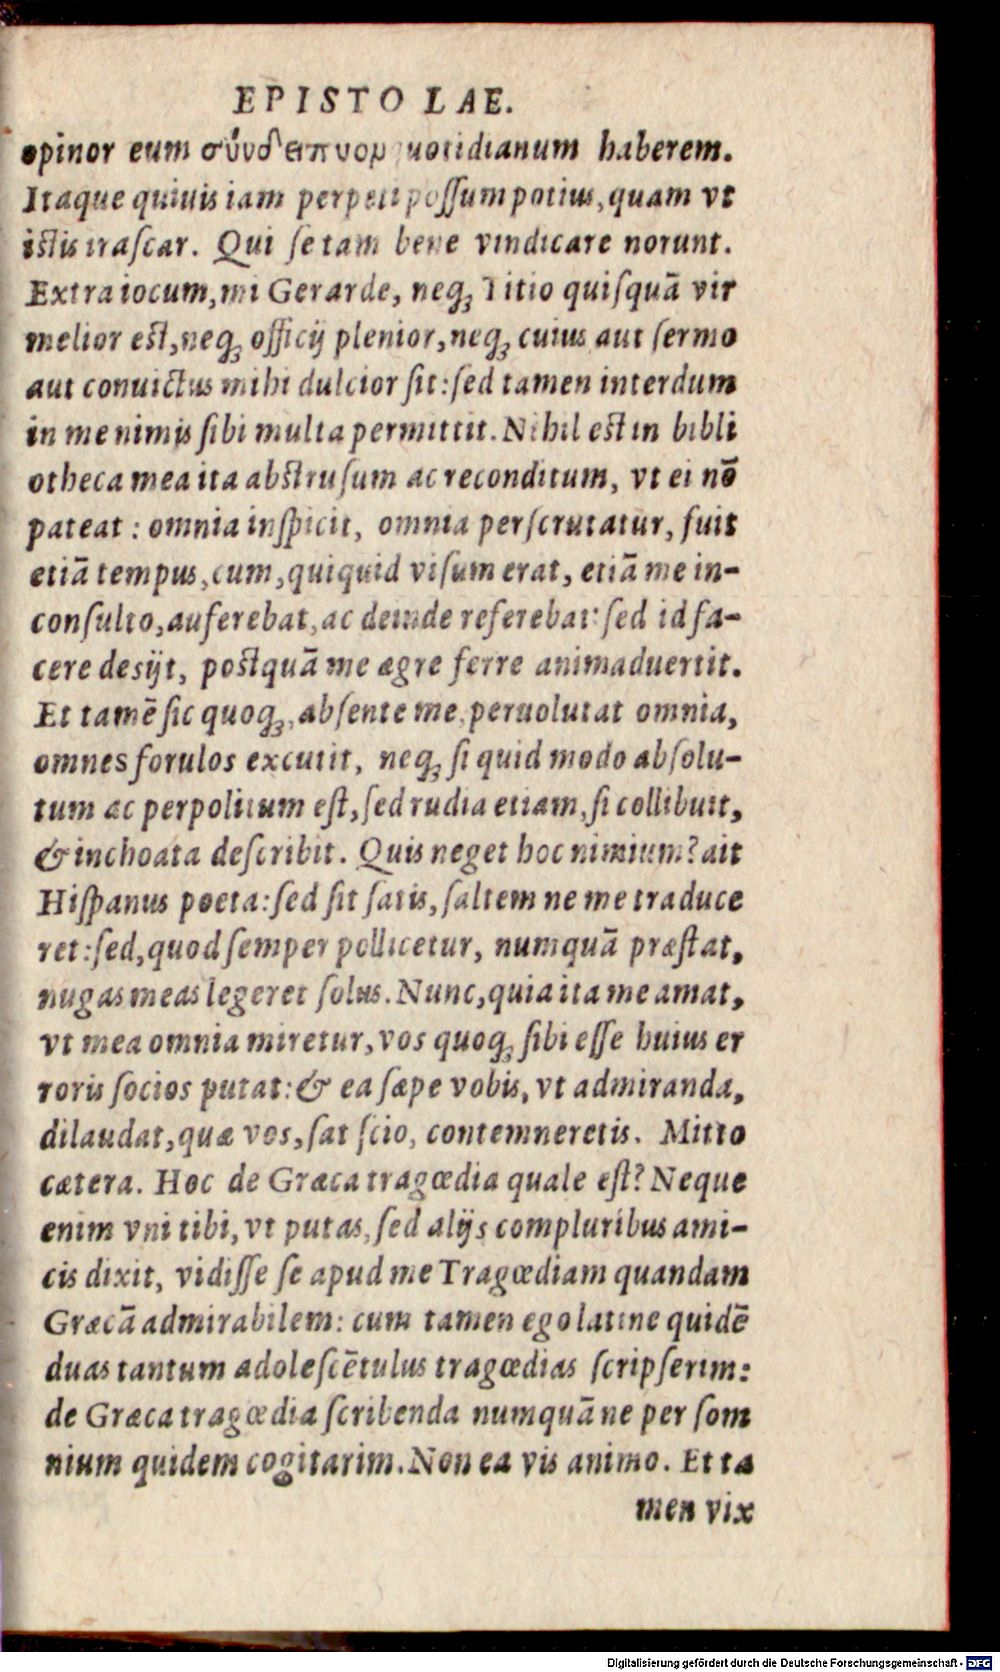 EPISTOLAE.
opinor eum σύνδειπνον quotidianum haberem.
Itaque quiuis iam perpeti possum potius, quam vt
istis irascar. Qui se tam bene vindicare norunt.
Extra iocum, mi Gerarde, neq; Titio quisquā vir
melior est, neq; officij plenior, neq; cuius aut sermo
aut conuictus mihi dulcior sit: sed tamen interdum
in me nimis sibi multa permittit. Nihil est in bibli
otheca mea ita abstrusum ac reconditum, vt ei nō
pateat: omnia inspicit, omnia perscrutatur, fuit
etiā tempus, cum, quiquid visum erat, etiā me in-
consulto, auferebat, ac deinde referebat: sed id fa-
cere desijt, postquā me ægre ferre animaduertit.
Et tamē sic quoq;, absente me, peruolutat omnia,
omnes forulos excutit, neq; si quid modo absolu-
tum ac perpolitum est, sed rudia etiam, si collibuit,
& inchoata describit. Quis neget hoc nimium? ait
Hispanus poeta: sed sit satis, saltem ne me traduce
ret: sed, quod semper pollicetur, numquā præstat,
nugas meas legeret solus. Nunc, quia ita me amat,
vt mea omnia miretur, vos quoq; sibi esse huius er
roris socios putat: & ea sæpe vobis, vt admiranda,
dilaudat, quæ vos, sat scio, contemneretis. Mitto
cætera. Hoc de Græca tragœdia quale est? Neque
enim vni tibi, vt putas, sed alijs compluribus ami-
cis dixit, vidisse se apud me Tragœdiam quandam
Græcā admirabilem: cum tamen ego latine quidē
duas tantum adolescētulus tragœdias scripserim:
de Græca tragœdia scribenda numquā ne per som
nium quidem cogitarim. Non ea vis animo. Et ta
men vix
Digitalisierung gefördert durch die Deutsche Forschungsgemeinschaft - DFG